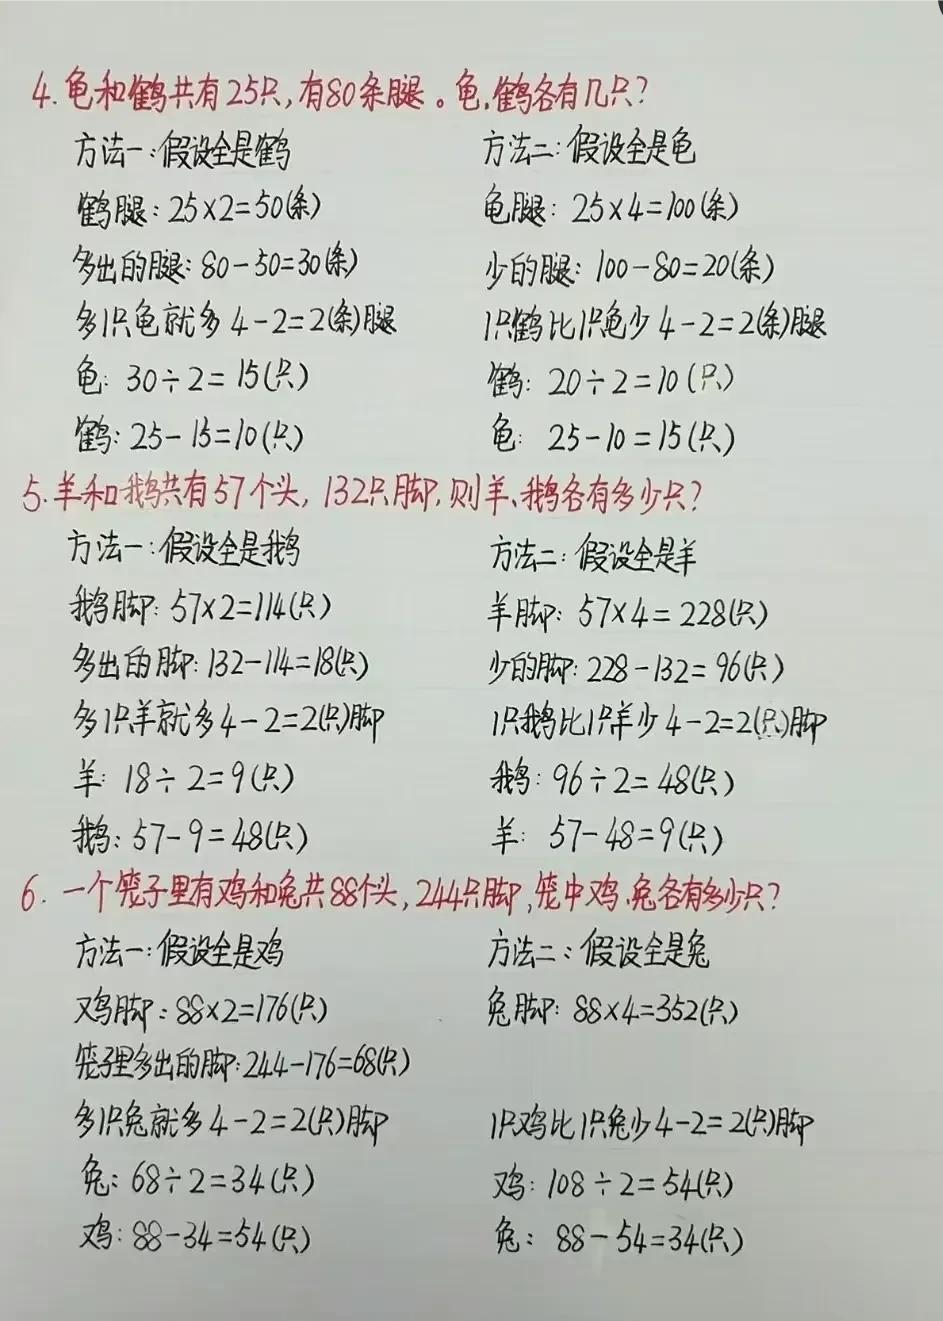 4. 龟和鹤共有25只,有80条腿。龟,鹤各有几只?
方法一:假设全是鹤
鹤腿:25×2=50(条)
多出的腿:80-50=30(条)
多1只龟就多4-2=2(条)腿
龟:30÷2=15(只)
鹤:25-15=10(只)
方法二:假设全是龟
龟腿:25×4=100(条)
少的腿:100-80=20(条)
1只鹤比1只龟少4-2=2(条)腿
鹤:20÷2=10(只)
龟:25-10=15(只)
5. 羊和鹅共有57个头,132只脚,则羊、鹅各有多少只?
方法一:假设全是鹅
鹅脚:57×2=114(只)
多出的脚:132-114=18(只)
多1只羊就多4-2=2(只)脚
羊:18÷2=9(只)
鹅:57-9=48(只)
方法二:假设全是羊
羊脚:57×4=228(只)
少的脚:228-132=96(只)
1只鹅比1只羊少4-2=2(只)脚
鹅:96÷2=48(只)
羊:57-48=9(只)
6. 一个笼子里有鸡和兔共88个头,244只脚,笼中鸡、兔各有多少只?
方法一:假设全是鸡
鸡脚:88×2=176(只)
笼子里多出的脚:244-176=68(只)
多1只兔就多4-2=2(只)脚
兔:68÷2=34(只)
鸡:88-34=54(只)
方法二:假设全是兔
兔脚:88×4=352(只)
1只鸡比1只兔少4-2=2(只)脚
鸡:108÷2=54(只)
兔:88-54=34(只)